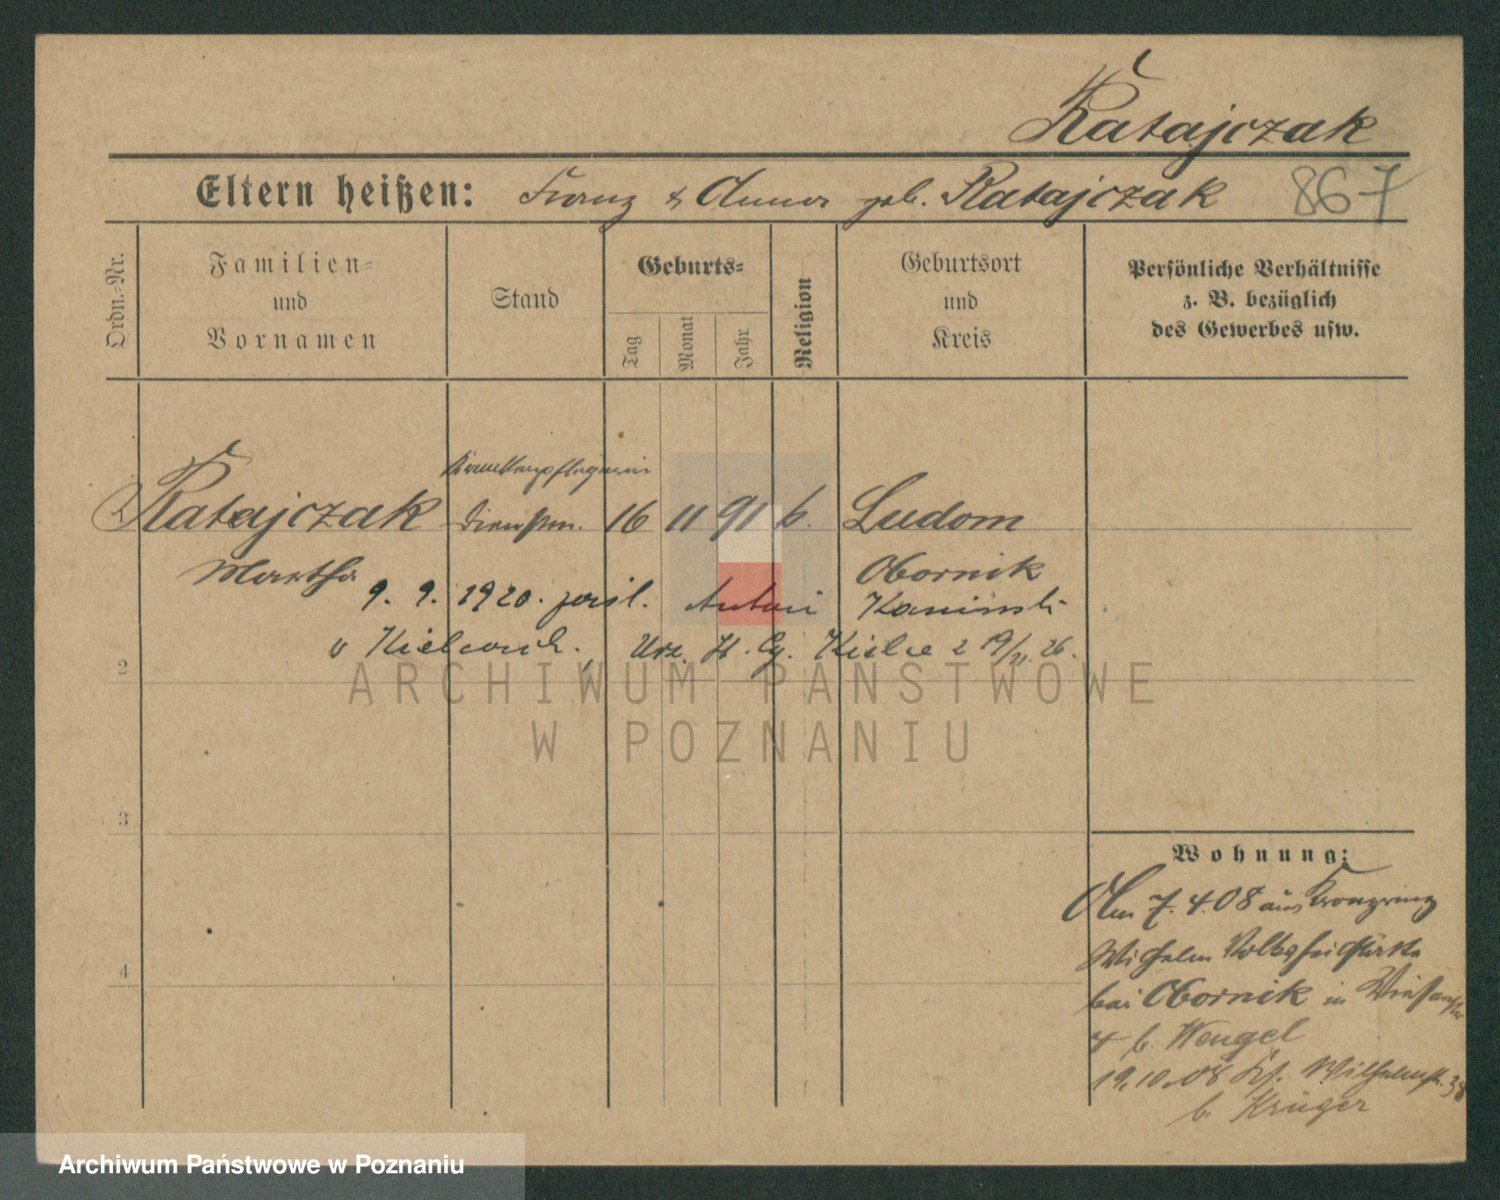 Ratajczak
Eltern heißen: Franz & Anna geb. Ratajczak 867
Ordn.-Nr.
Familien-
und
Vornamen
Stand
Geburts-
Tag
Monat
Jahr
Religion
Geburtsort
und
Kreis
Persönliche Verhältnisse
z. B. bezüglich
des Gewerbes usw.
Krankenpflegerin
1 Ratajczak Dienstm. 16 11 91 k. Ludom
Martha Obornik
9. 9. 1920. Antoni Kaminski
v Kielcach. Urz. Kielce 2 19/ 26.
2
ARCHIWUM PAŃSTWOWE
W POZNANIU
3
Wohnung:
Am 7.4.08 aus Kronprinz
Wilhelm Volksheilstätte
bei Obornik in
4 b. Wengel
4
19.10.08 Wilhelmstr. 38
b. Krüger
Archiwum Państwowe w Poznaniu